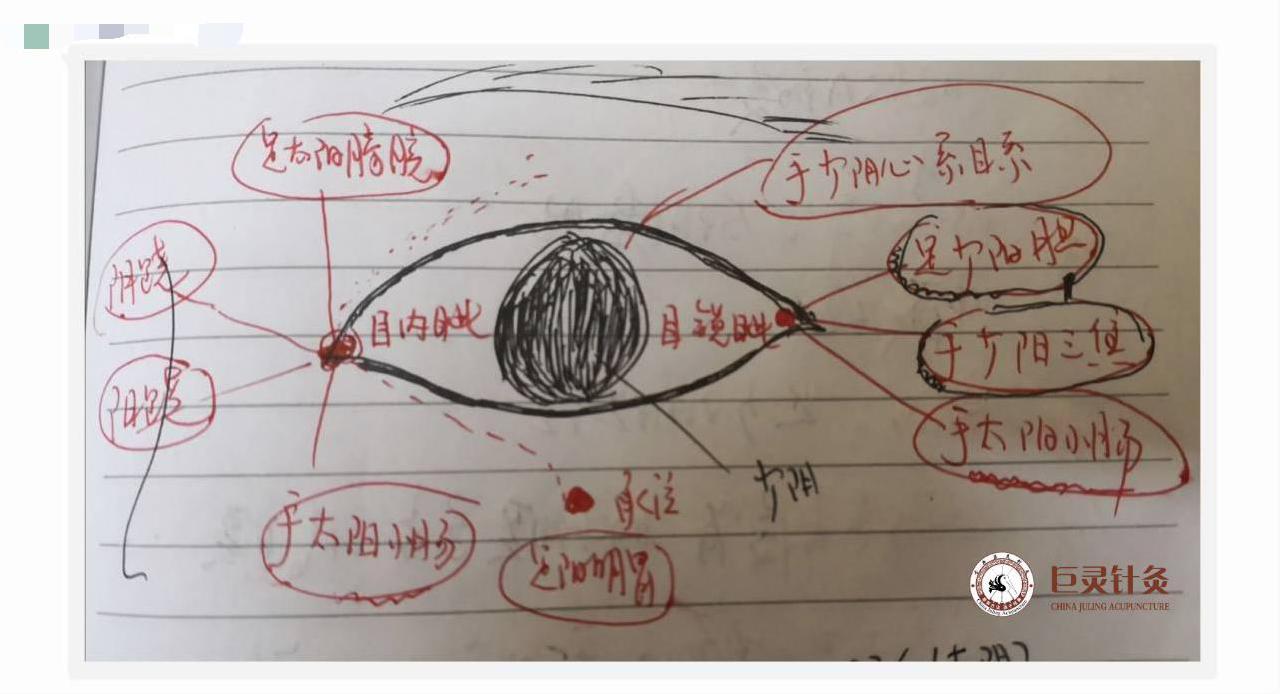 足太阳膀胱
手少阴心系目系
足少阳胆
阴跷
目内眦
目锐眦
手少阳三焦
阳跷
手太阳小肠
少阴
承泣
手太阳小肠
足阳明胃
巨灵针灸
CHINA JULING ACUPUNCTURE